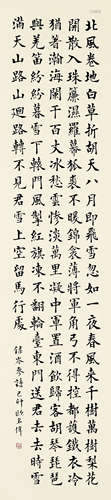 北風卷地白草折胡天八月即飛雪忽如一夜春風來千樹萬樹梨花
開散入珠簾濕羅幕狐裘不煖錦衾薄將軍角弓不得控都護鐵衣冷
猶著瀚海闌干百丈冰愁雲慘淡萬里凝中軍置酒飲歸客胡琴琵琶
與羌笛紛紛暮雪下轅門風掣紅旗凍不翻輪臺東門送君去去時雪
滿天山路山迴路轉不見君雪上空留馬行處
錄岑參詩